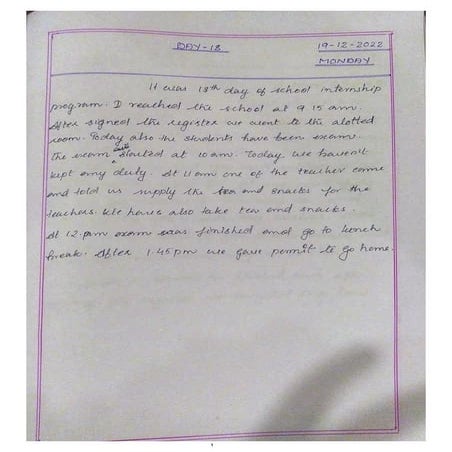 DAY-18
19-12-2022
MONDAY
It was 18th day of school internship
program. I reached the school at 9 15 am.
After signed the register we went to the alotted
room. Today also the students have been exam.
the exam started at 10 am. Today we haven't
kept any duty. At 11 am one of the teacher came
and told us supply the tea and snacks for the
teachers. We have also take tea and snacks.
At 12.pm exam was finished and go to lunch
break. After 1.45 pm we gave permit to go home.